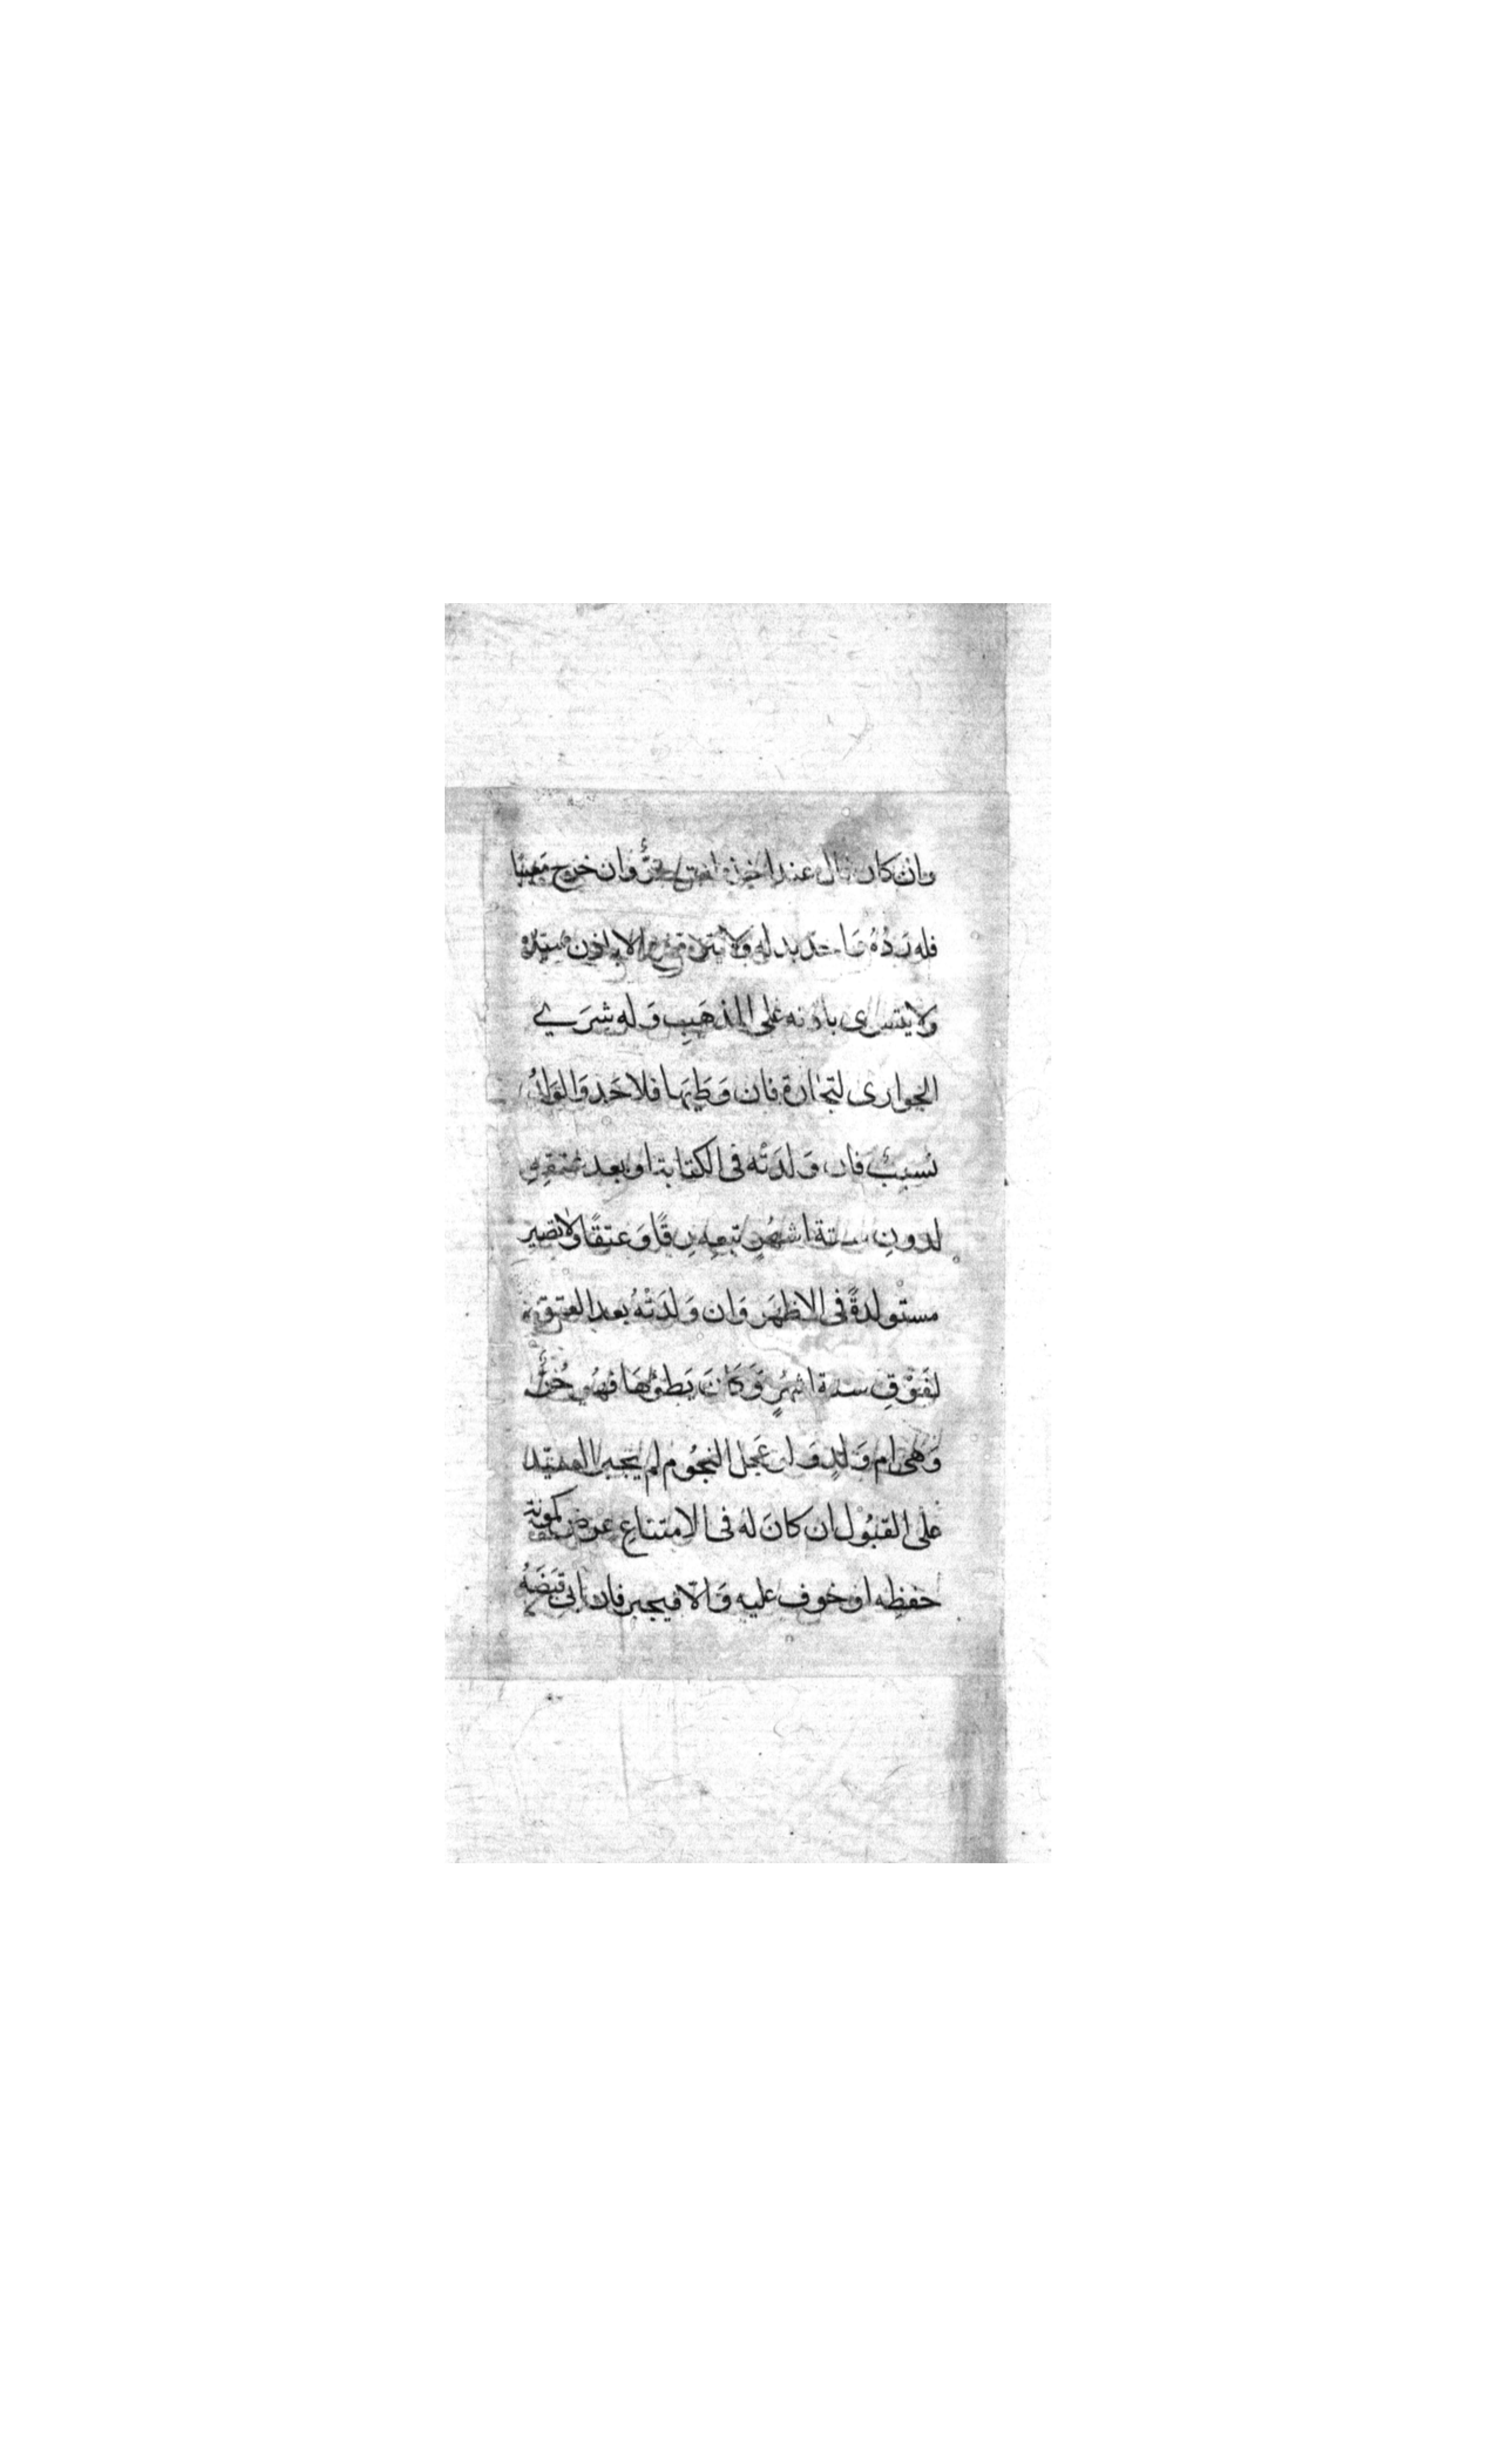 وان كان قال عند اخذه انت حرٌّ وان خرج معيبا
فله رَدُّهُ وَاخذ بدله ولا يتزوج الا باذن سيّده
ولا يتسرى باذنه على المذهَبِ وَله شِرَي
الجوارى لتجارة فان وَطِيَها فلا حَد وَالوَلدُ
نسيبٌ فان وَلدَتْه فى الكتابة او بعد عتقهِ
لدونِ ستة اشهُرٍ تبعه رِقًا وَعتقًا ولا تصير
مستولدةً فى الاظهَر وَان وَلدَتْهُ بعد العتق
لفَوْقِ ستة اشهُرٍ وَكَانَ يَطؤُهَا فهُو حُرٌّ
وَهْىَ ام وَلدٍ وَلو عَجل النجُوم لم يجبر السيّد
على القبُول ان كانَ لهُ فى الامتناعِ غرض كمونة
حفظِه او خوف عليه وَالّا فيجبر فان ابى قبَضَهُ